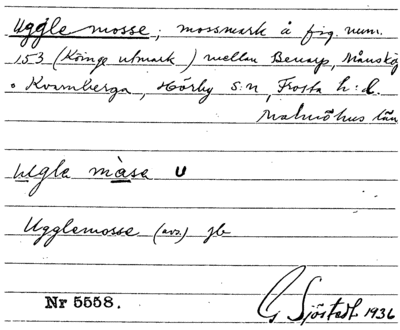 Uggle mosse, mossmark å fig. num.
153 (Köinge utmark) mellan Benarp, Månskög
o Kvarnberga, Hörby s:n, Frosta h:d.
Malmöhus län
uglə màsə u
Ugglemosse (avs.) jb
Nr 5558.
G Sjöstedt 1936